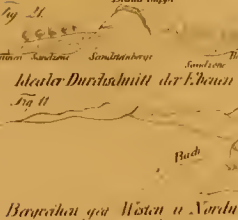 Fig 21.
Sandzone Sandsteinberge
Sandzone
Idealer Durchschnitt der Ebenen
Fig 11
Bach
Bergreihen geg Westen u Nordw